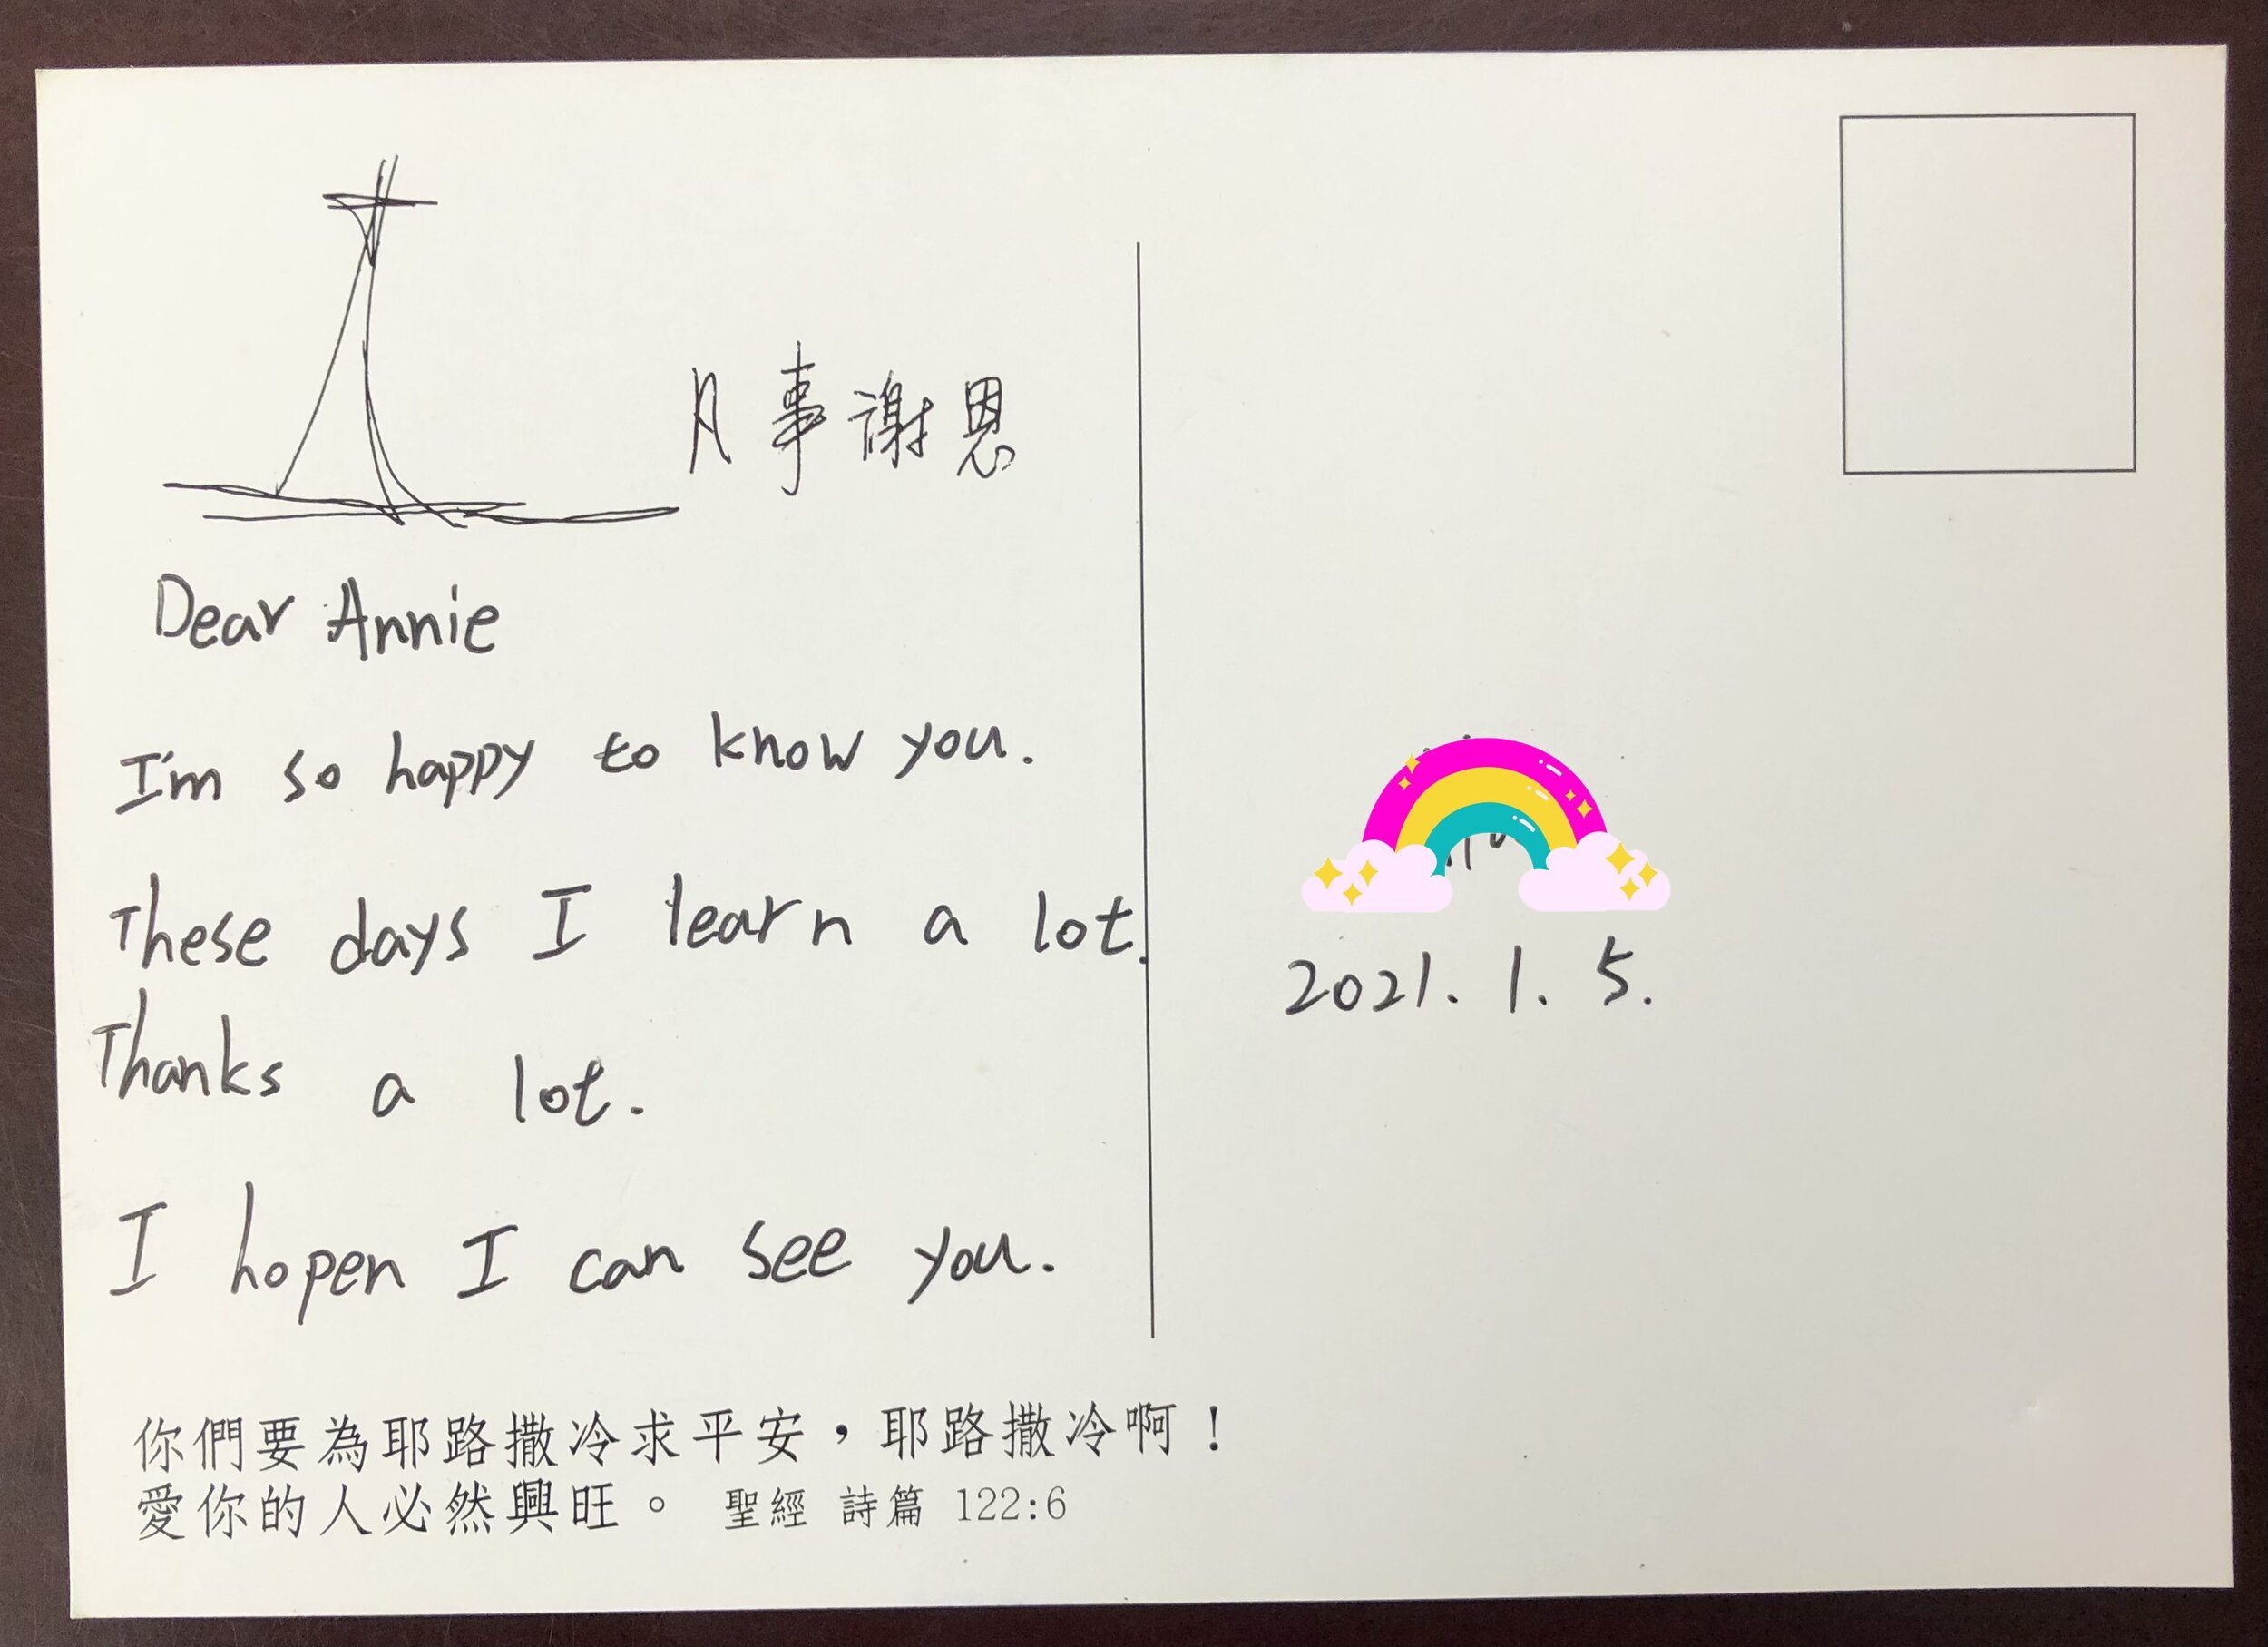 凡事謝恩
Dear Annie
I'm so happy to know you.
These days I learn a lot.
Thanks a lot.
I hopen I can see you.
2021. 1. 5.
你們要為耶路撒冷求平安，耶路撒冷啊！
愛你的人必然興旺。 聖經 詩篇 122:6